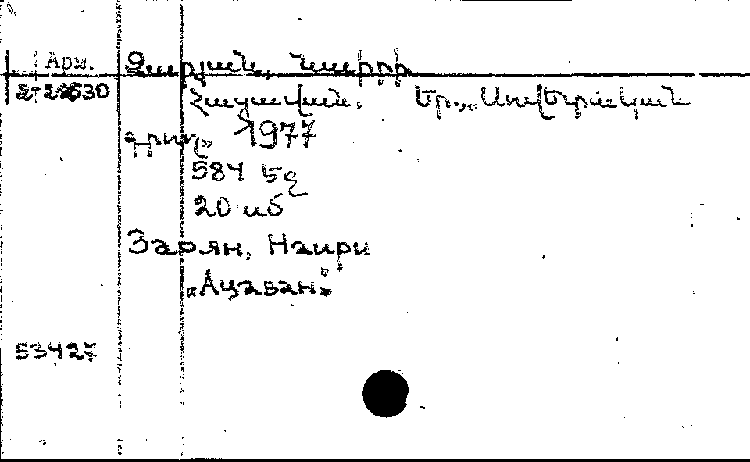 Арм. Զարյան, Նաիրի
Հացավան. Եր., „Սովետական
գրող" 1977
584 եզ
20 սմ
Зарян, Наири
„Ацаван"
53427